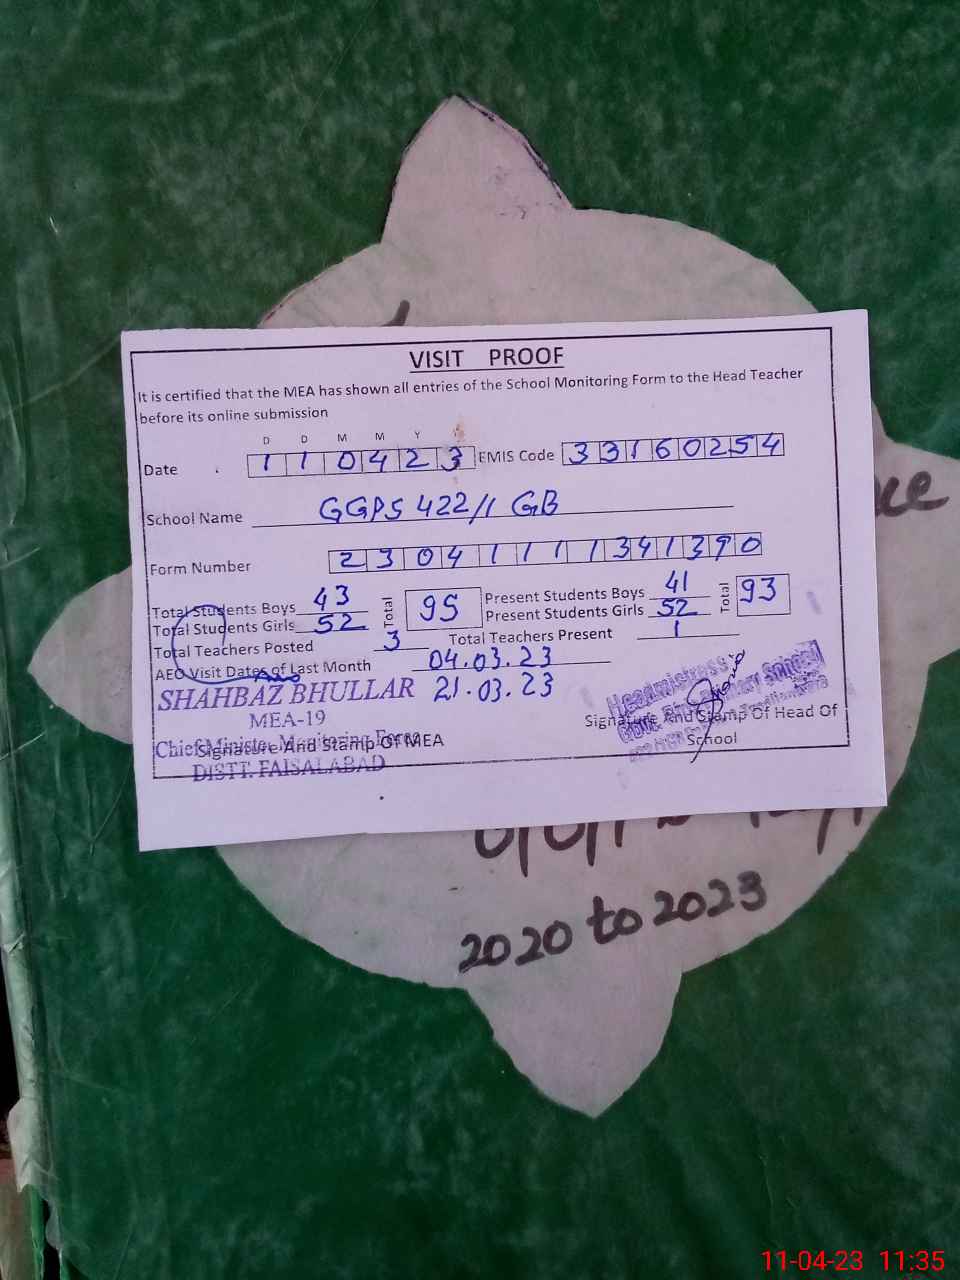 VISIT PROOF
It is certified that the MEA has shown all entries of the School Monitoring Form to the Head Teacher
before its online submission
D D M M Y
Date 110423 EMIS Code 33160254
School Name GGPS 422/1 GB
Form Number 23041111341390
Total Students Boys 43 Total 95 Present Students Boys 41 Total 93
Total Students Girls 52 Present Students Girls 52
Total Teachers Posted 3 Total Teachers Present 1
AEO Visit Dates of Last Month 04.03.23
21.03.23
SHAHBAZ BHULLAR
MEA-19
Chief Minister Monitoring Force
DISTT. FAISALABAD
Signature And Stamp Of MEA
Headmistress
Govt. Primary School
Signature And Stamp Of Head Of
School
2020 to 2023
11-04-23 11:35